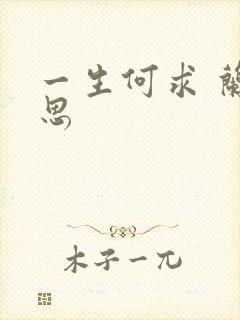 一生何求 蘭
思
木子一兀